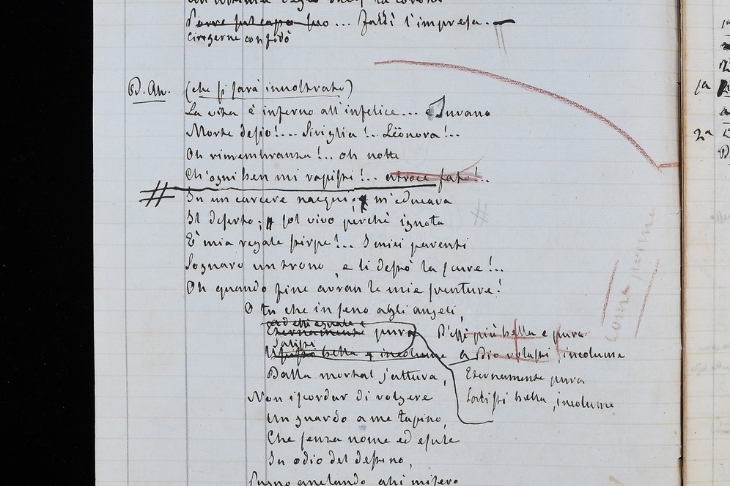 Forse ... Falli l'impresa.
D. Alv. (che si sarà innoltrato)
La vita è inferno all'infelice... Invano
Morte desio!... Siviglia!.. Leonora!..
Oh rimembranza!.. oh notte
Ch'ogni ben mi rapisti!.. atroce fato!..
In un carcere nacqui; m'educava
Il deserto; sol vivo perchè ignota
È mia regale stirpe!.. I miei parenti
Sognaro un trono, e li destò la scure!..
Oh quando fine avran le mie sventure!
O tu che in seno agli angeli,
Eternamente pura
Salisti bella, incolume
Dalla mortal jattura,
Non iscordar di volgere
Un guardo a me tapino,
Che senza nome ed esule
In odio del destino,
Pugno anelando, ahi misero
più bella e pura
a Dio volasti, incolume
Eternamente pura
Salisti bella, incolume
Come prima
1a
2a